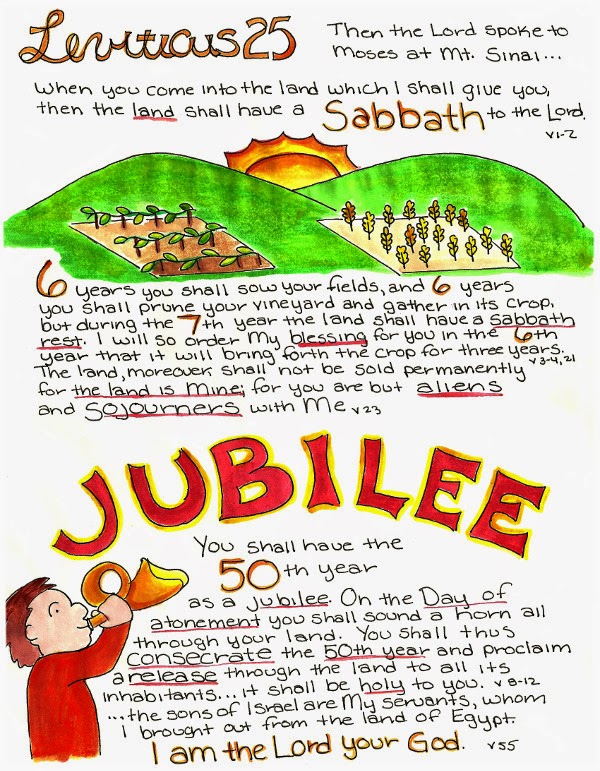 Leviticus 25
Then the Lord spoke to
Moses at Mt. Sinai...
When you come into the land which I shall give you,
then the land shall have a Sabbath to the Lord.
v1-2
6 years you shall sow your fields, and 6 years
you shall prune your vineyard and gather in its crop,
but during the 7th year the land shall have a Sabbath
rest. I will so order My blessing for you in the 6th
year that it will bring forth the crop for three years.
v3-4,21
The land, moreover, shall not be sold permanently
for the land is Mine; for you are but aliens
and Sojourners with Me v23
JUBILEE
You shall have the
50th year
as a jubilee. On the Day of
atonement you shall sound a horn all
through your land. You shall thus
consecrate the 50th year and proclaim
a release through the land to all its
inhabitants... it shall be holy to you. v8-12
...the sons of Israel are My servants, whom
I brought out from the land of Egypt.
I am the Lord your God. v55